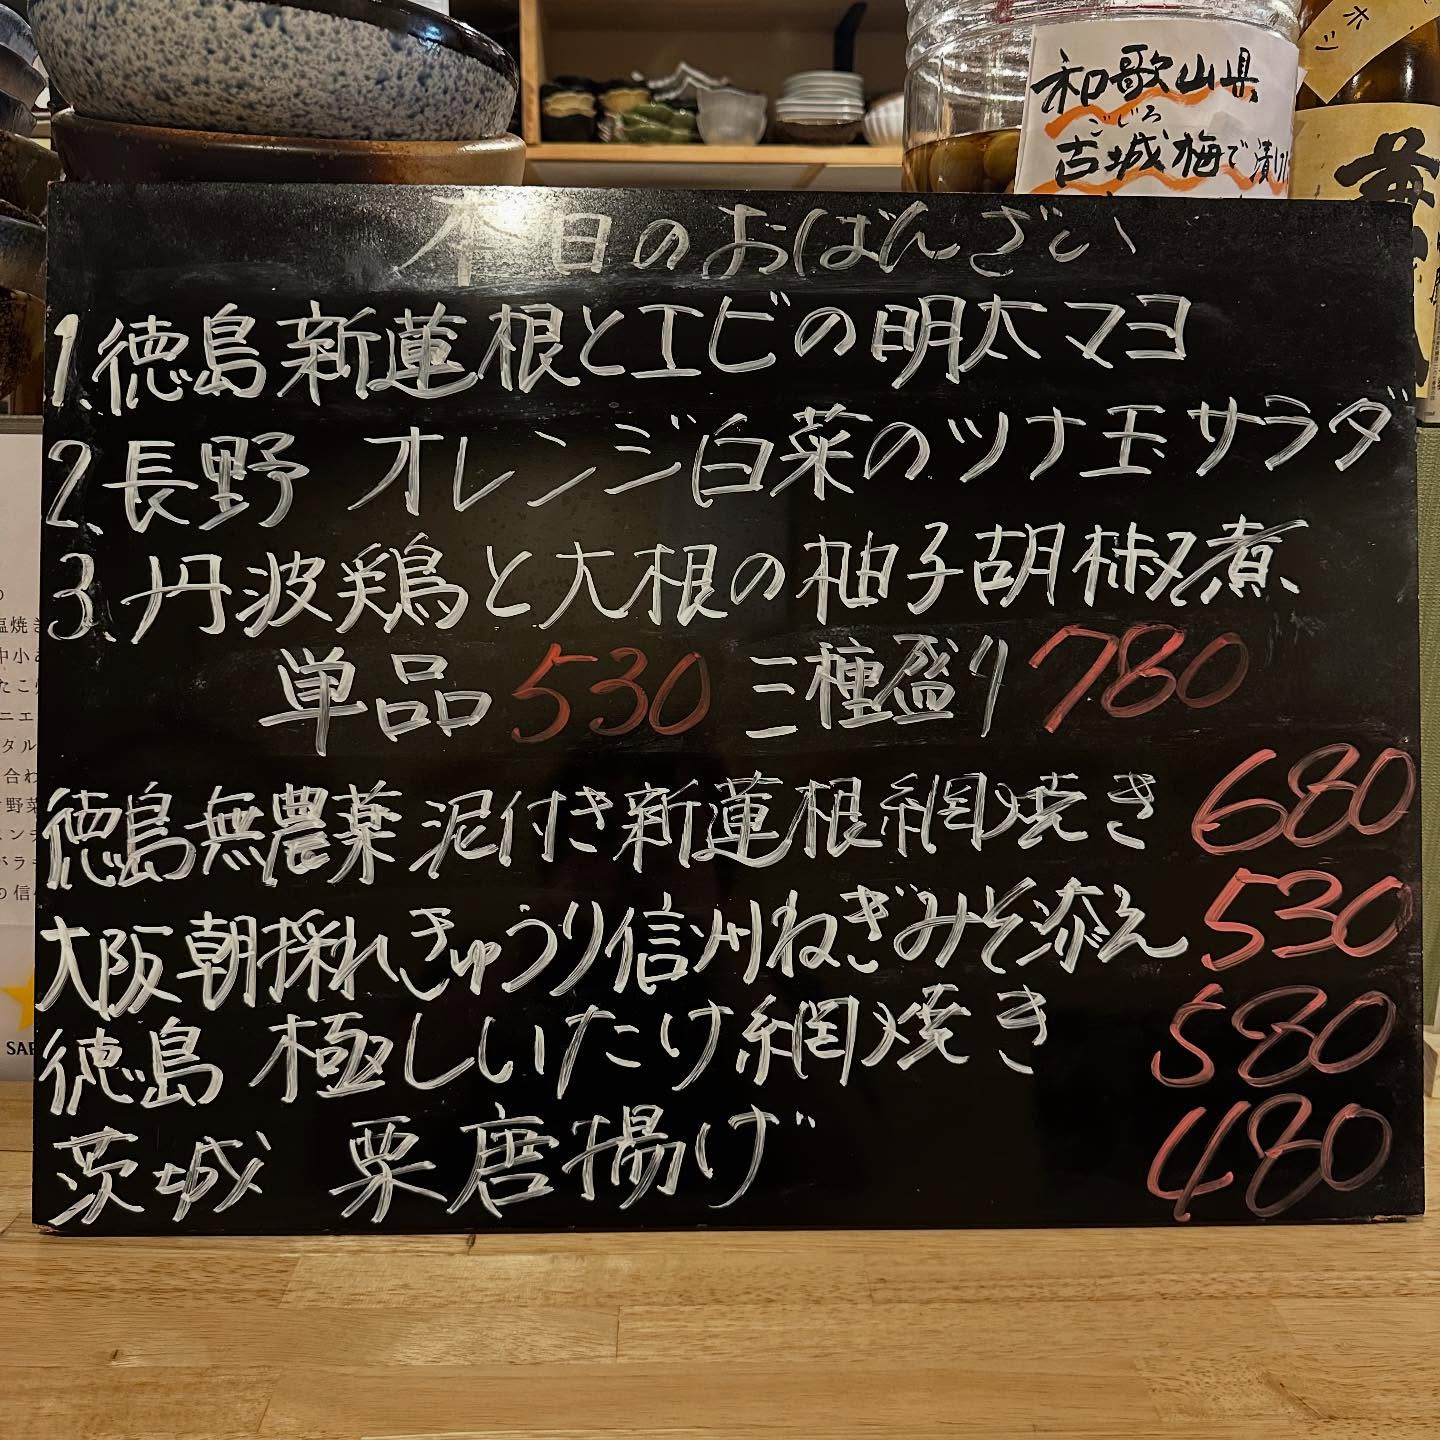 和歌山県
ごじろ
古城梅で漬け
ホシ
本日のおばんざい
1.徳島新蓮根とエビの明太マヨ
2.長野 オレンジ白菜のツナ玉サラダ
3.丹波鶏と大根の柚子胡椒煮
単品530 三種盛り780
徳島無農薬泥付き新蓮根網焼き 680
大阪朝採れきゅうり信州ねぎみそ添え 530
徳島 極しいたけ網焼き 580
茨城 栗唐揚げ 480
塩焼き